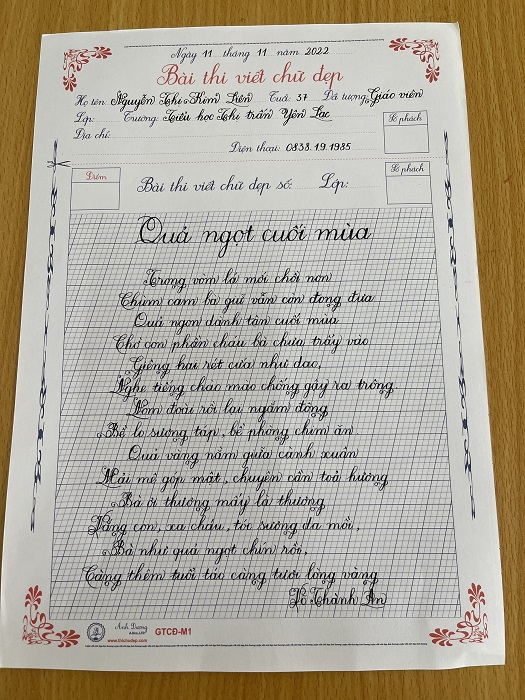 Ngày 11 tháng 11 năm 2022
Bài thi viết chữ đẹp
Họ tên: Nguyễn Thị Kim Liên Tuổi: 37 Đối tượng: Giáo viên
Lớp: Trường: Tiểu học Thị trấn Yên Lạc
Địa chỉ:
Điện thoại: 0838.19.1985
Số phách
Điểm
Bài thi viết chữ đẹp số: Lớp:
Số phách
Quả ngọt cuối mùa
Trong vòm lá mới chồi non
Chùm cam bà giữ vẫn còn đong đưa
Quả ngon dành tận cuối mùa
Chờ con phần cháu bà chưa trẩy vào
Giêng hai rét cứa như dao,
Nghe tiếng chào mào chống gậy ra trông.
Nom đoài rồi lại ngắm đông
Bề lo sương táp, bề phòng chim ăn.
Quả vàng nằm giữa cành xuân
Mải mê góp mật, chuyên cần toả hương
Bà ơi thương mấy là thương
Vắng con, xa cháu, tóc sương da mồi,
Bà như quả ngọt chín rồi,
Càng thêm tuổi tác càng tươi lòng vàng
Võ Thành An
Ánh Dương
GTCĐ-M1
www.thichudep.com